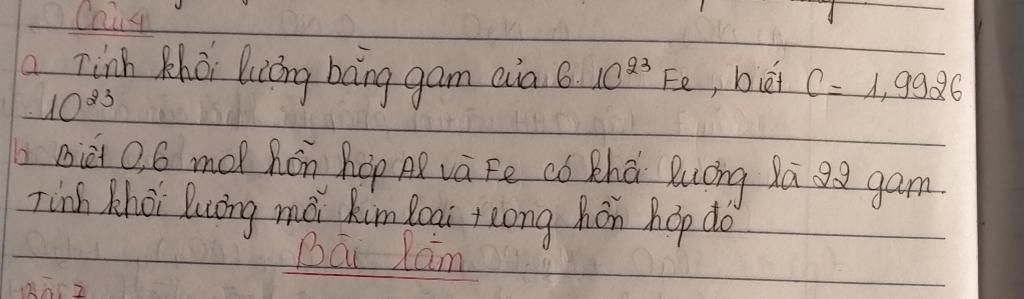 Câu 4
a Tính khối lượng bằng gam của 6. 10²³ Fe, biết C = 1,9926
.10²³
b Biết 0,6 mol hỗn hợp Al và Fe có khối lượng là 22 gam.
Tính khối lượng mỗi kim loại trong hỗn hợp đó
Bài làm